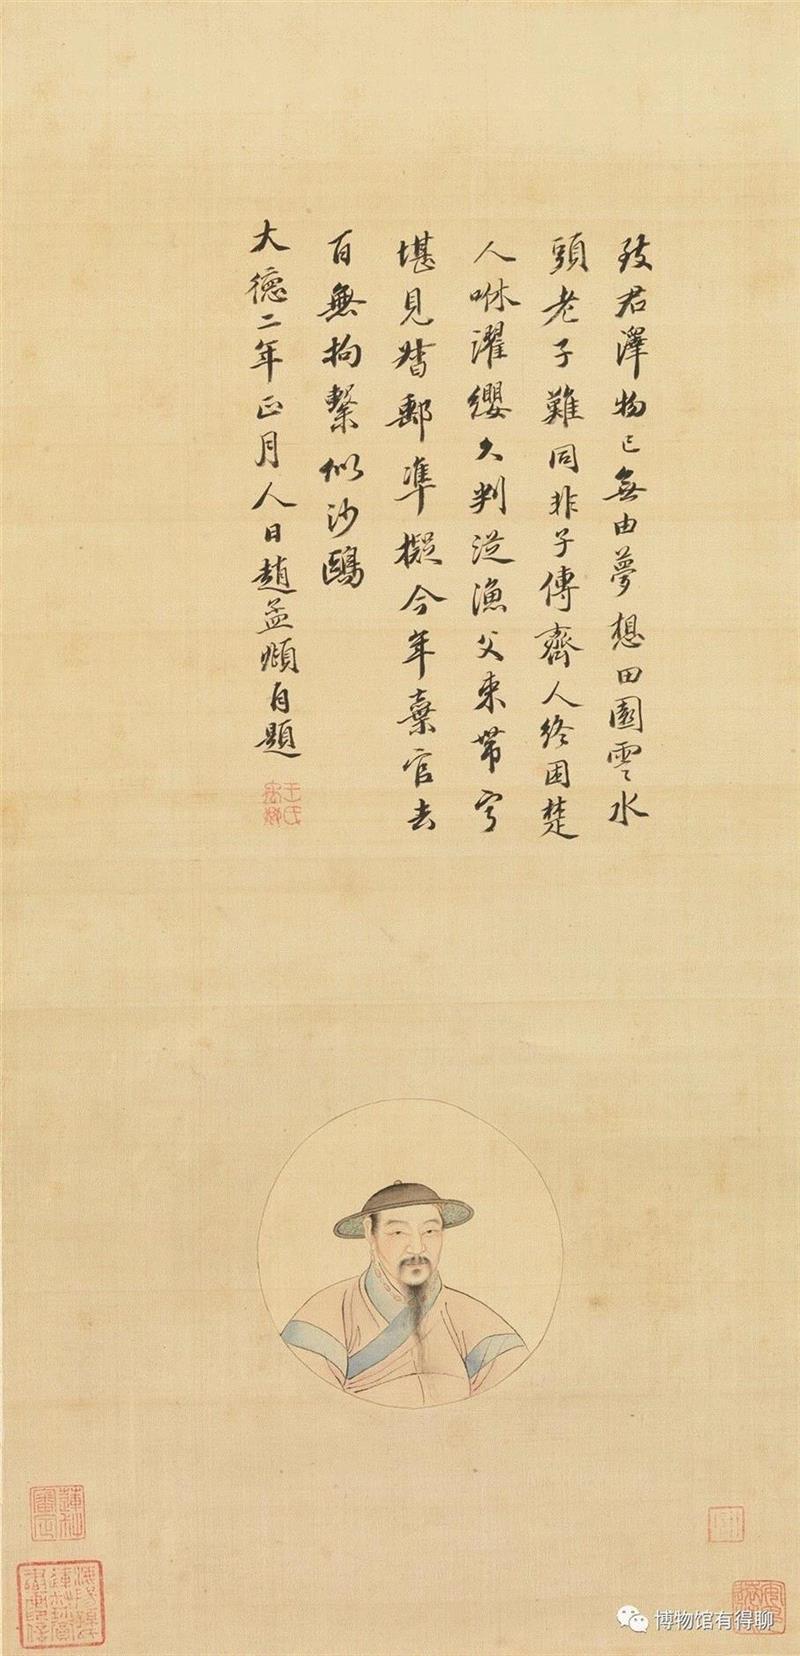 致君澤物已無由夢想田園雲水
頭老子難同非子傳齊人終困楚
人咻濯纓久判從漁父束帶寧
堪見督郵準擬今年棄官去
百無拘繫似沙鷗
大德二年正月人日趙孟頫自題
博物馆有得聊